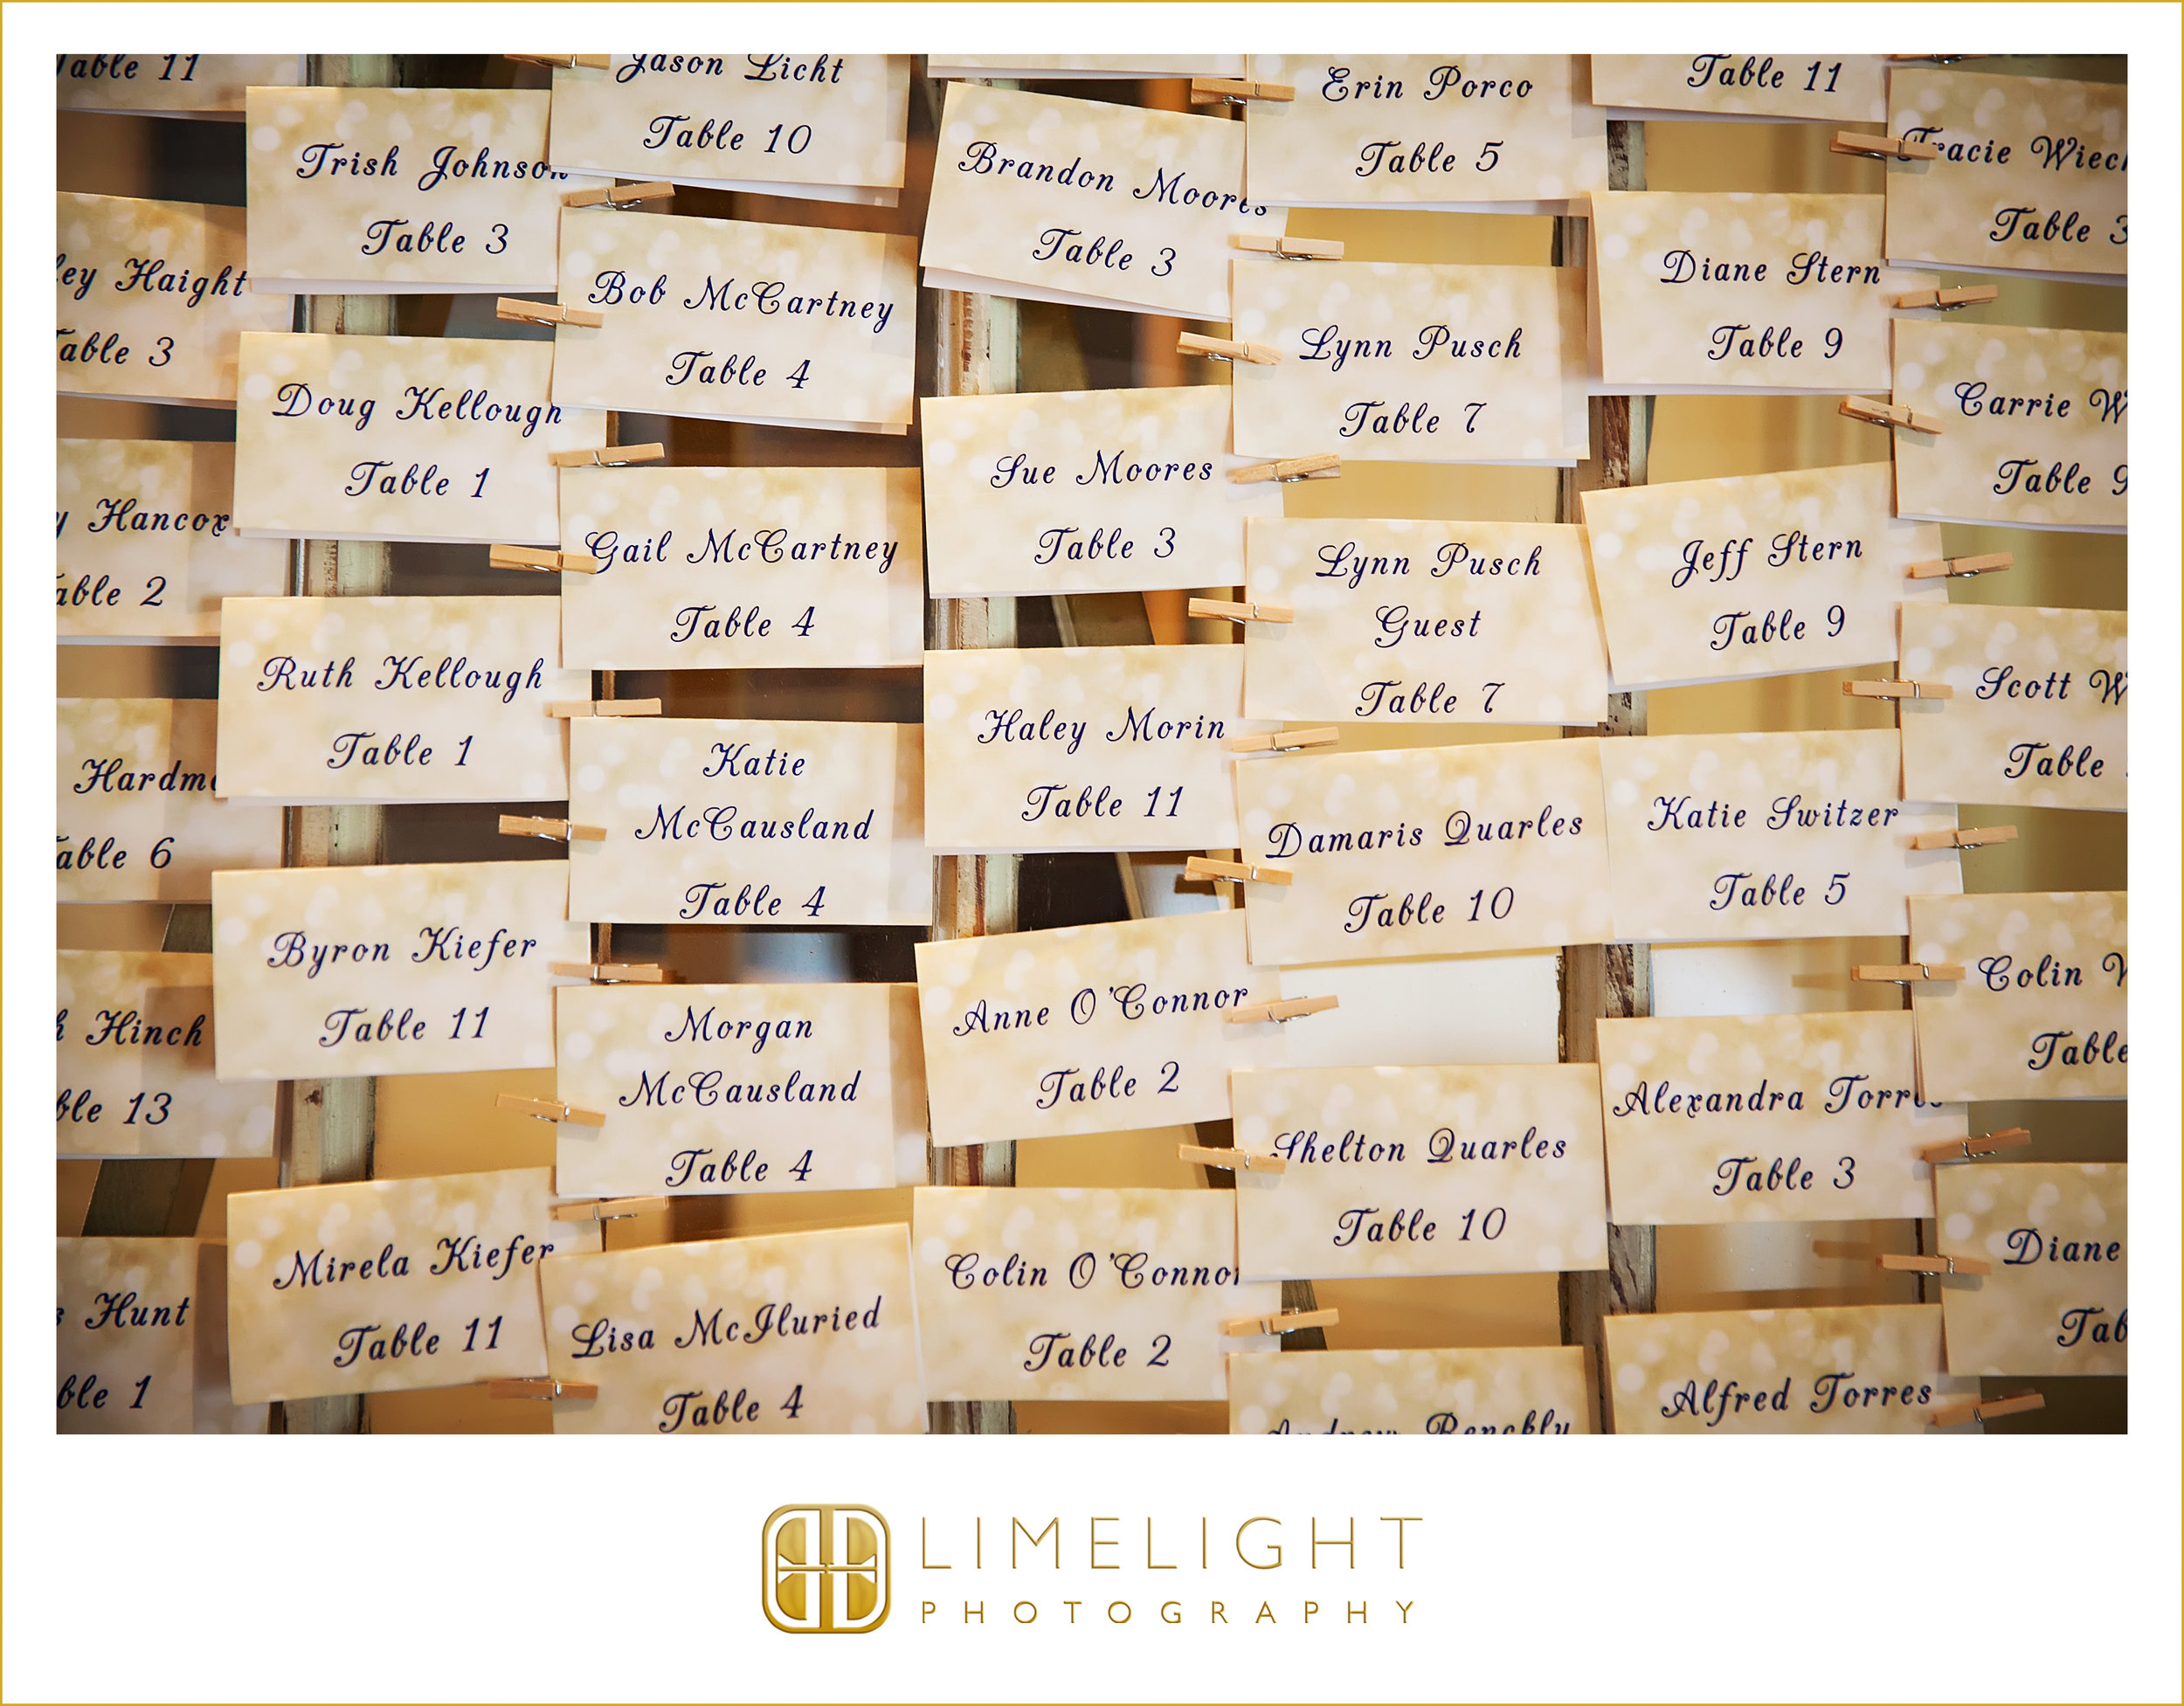 Table 11
ley Haight
Table 3
y Hancox
Table 2
Hardm
Table 6
h Hinch
ble 13
s Hunt
ble 1
Trish Johnson
Table 3
Doug Kellough
Table 1
Ruth Kellough
Table 1
Byron Kiefer
Table 11
Mirela Kiefer
Table 11
Jason Licht
Table 10
Bob McCartney
Table 4
Gail McCartney
Table 4
Katie
McCausland
Table 4
Morgan
McCausland
Table 4
Lisa McIluried
Table 4
Brandon Moores
Table 3
Sue Moores
Table 3
Haley Morin
Table 11
Anne O'Connor
Table 2
Colin O'Connor
Table 2
Erin Porco
Table 5
Lynn Pusch
Table 7
Lynn Pusch
Guest
Table 7
Damaris Quarles
Table 10
Shelton Quarles
Table 10
Andrew Renckly
Table 11
Diane Stern
Table 9
Jeff Stern
Table 9
Katie Switzer
Table 5
Alexandra Torres
Table 3
Alfred Torres
Tracie Wiec
Table 3
Carrie W
Table 9
Scott W
Table
Colin W
Table
Diane
Tab
LIMELIGHT
PHOTOGRAPHY